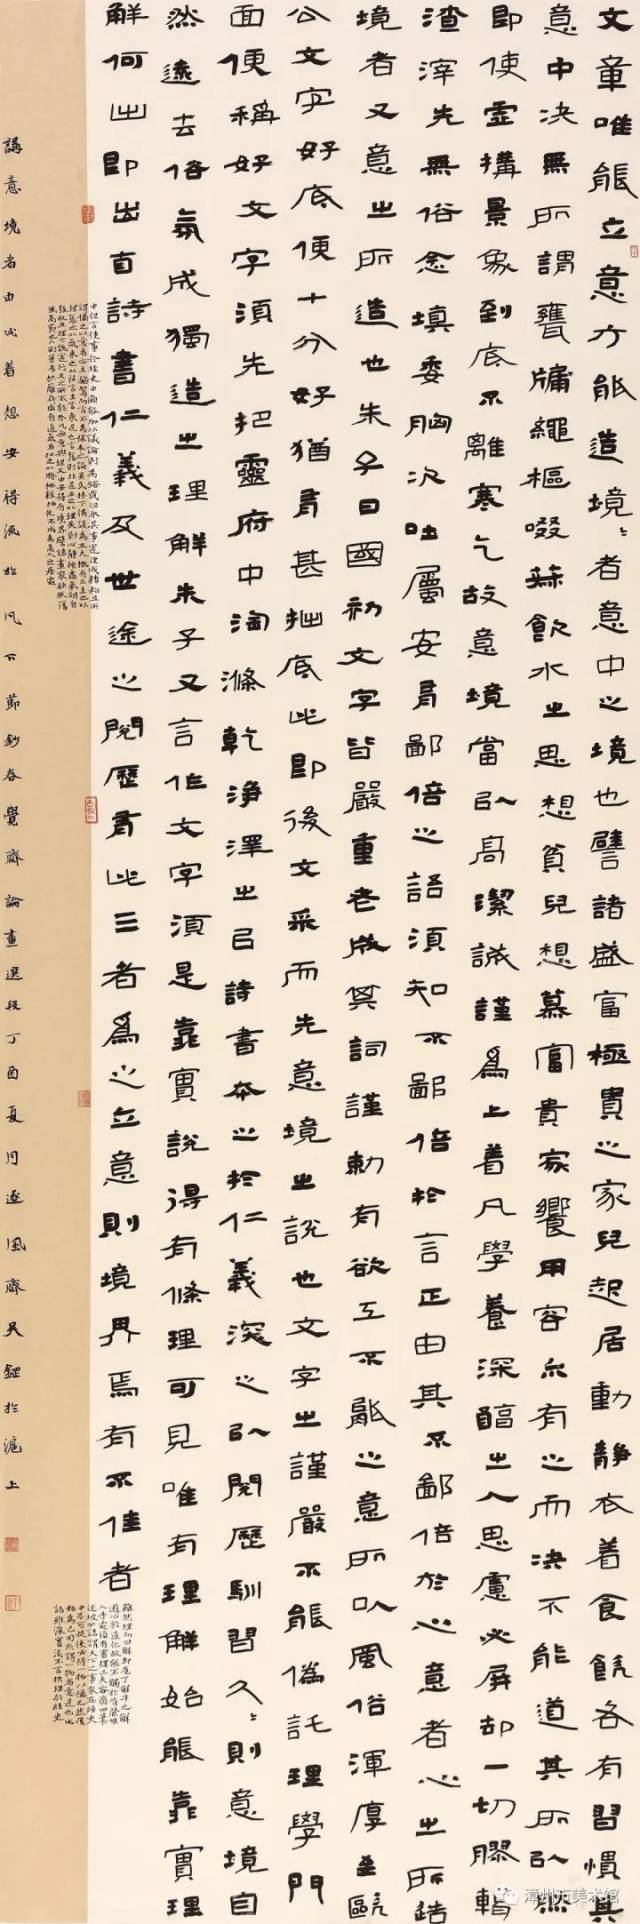 文章唯能立意方能造境〻者意中之境也譬諸盛富極貴之家兒起居動靜衣着食飲各有習慣其
意中决無所謂甕牖繩樞啜菽飲水之思想貧兒想慕富貴家饗用容亦有之而决不能道其所以然
即使虛搆景象到底不離寒乞故意境當以高潔誠謹爲上着凡學養深醇之人思慮必屏却一切膠轕
渣滓先無俗念填委胸次吐屬安有鄙倍之語須知不鄙倍於言正由其不鄙倍於心意者心之所造
境者又意之所造也朱子曰國初文字皆嚴重老成其詞謹勅有欲工不能之意所以風俗渾厚至歐
公文字好底便十分好猶有甚拙底此即後文采而先意境之說也文字之謹嚴不能偽託理學門
面便稱好文字須先把靈府中淘滌乾淨澤之以詩書本之於仁義深之以閱歷馴習久〻則意境自
然遠去俗氣成獨造之理解朱子又言作文字須是靠實說得有條理可見唯有理解始能靠實理
解何出即出自詩書仁義及世途之閱歷有此三者爲之立意則境界焉有不佳者
講意境者由此着想安得流於凡下節鈔春覺齋論畫選段丁酉夏月逐風齋吳於滬上
漳州市美术馆